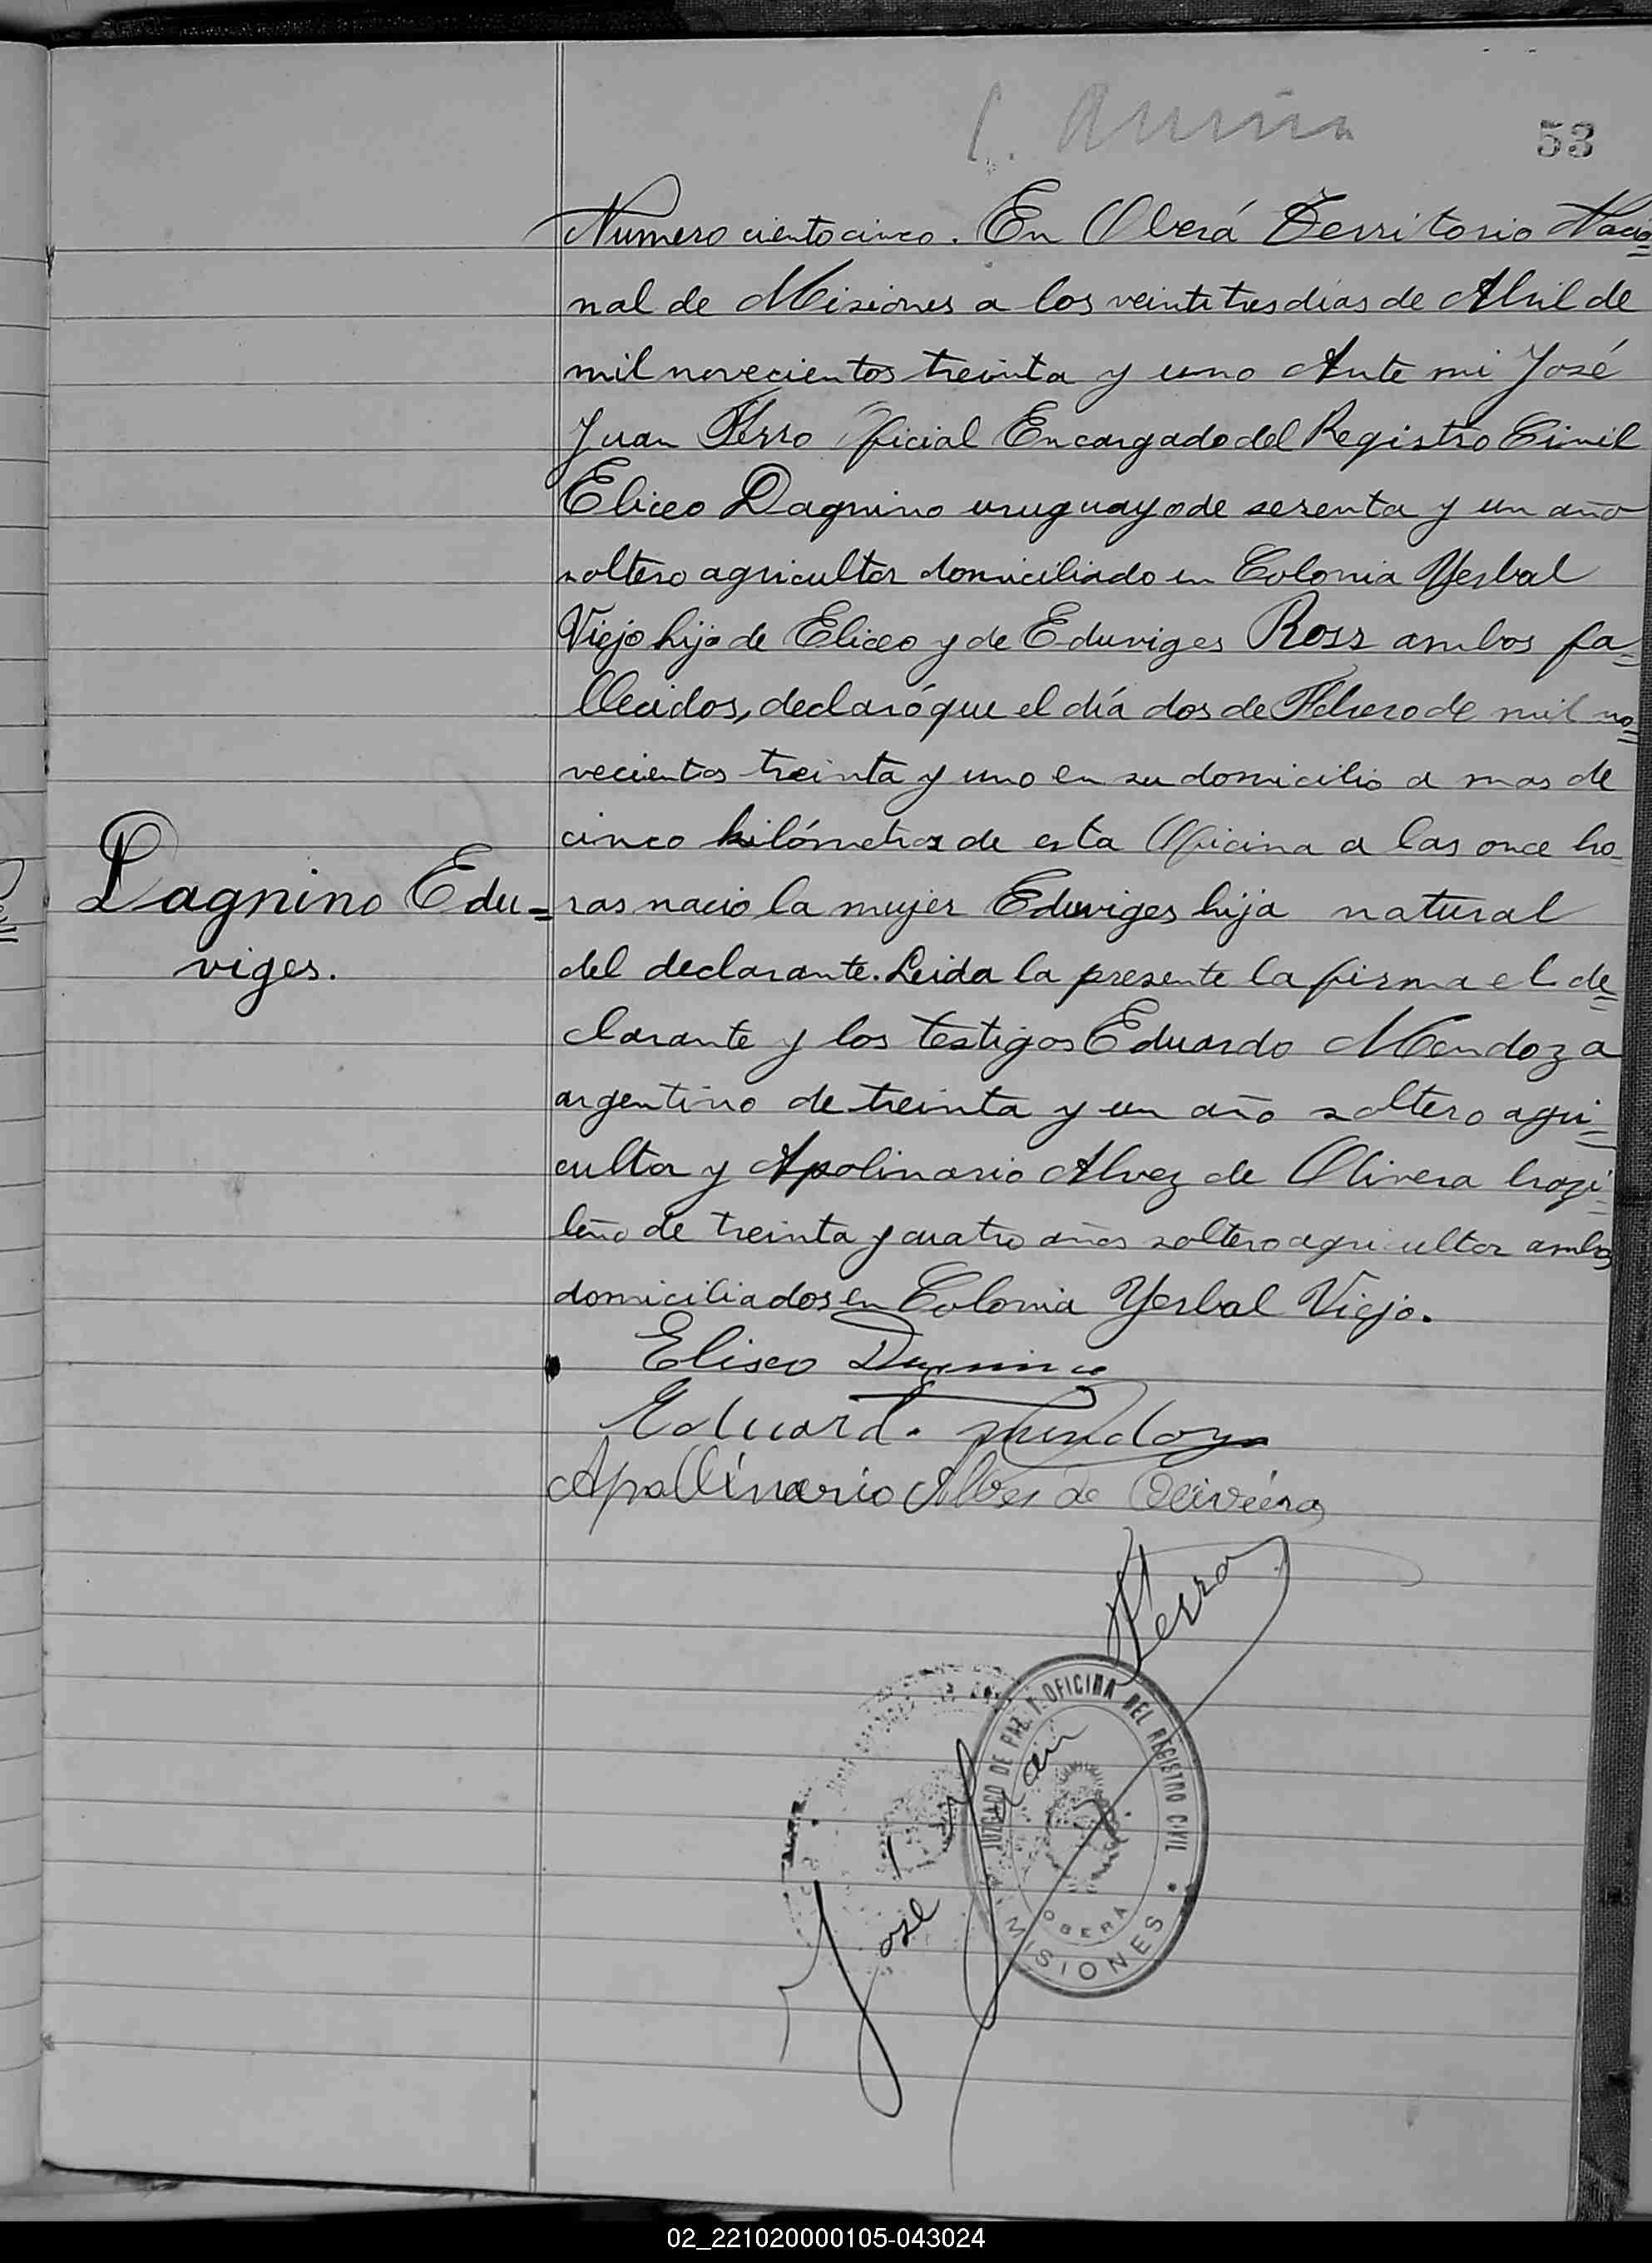 53
Numero ciento cinco. En Oberá Territorio Nacio=
nal de Misiones a los veintitres dias de Abril de
mil novecientos treinta y uno Ante mi José
Juan Ferro Oficial Encargado del Registro Civil
Eliceo Dagnino uruguayo de sesenta y un año
soltero agricultor domiciliado en Colonia Yerbal
Viejo hijo de Eliceo y de Eduviges Ross ambos fa=
llecidos, declaró que el día dos de Febrero de mil no=
vecientos treinta y uno en su domicilio a mas de
cinco kilómetros de esta Oficina a las once ho=
Dagnino Edu=
viges.
ras nacio la mujer Eduviges hija natural
del declarante. Leida la presente la firma el de=
clarante y los testigos Eduardo Mendoza
argentino de treinta y un año soltero agri=
cultor y Apolinario Alvez de Olivera brazi=
leño de treinta y cuatro años soltero agricultor ambos
domiciliados en Colonia Yerbal Viejo.
Eliseo Dagnino
Eduard. Mendoza
Apollinario Alves de Oliveira
José Juan Ferro
JUZGADO DE PAZ Y OFICINA DEL REGISTRO CIVIL
OBERÁ
MISIONES
02_221020000105-043024